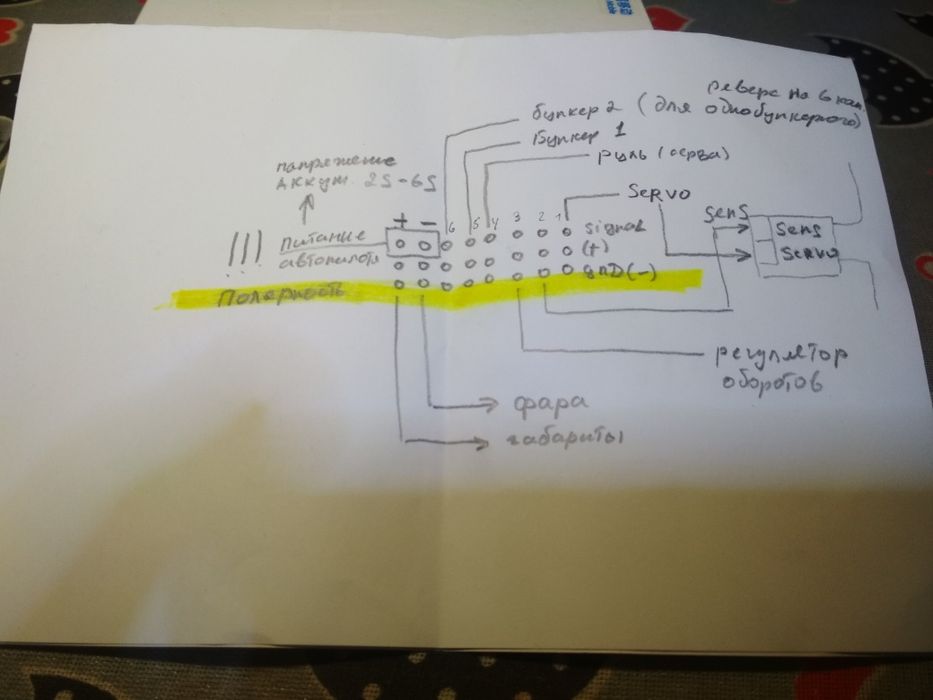 реверс на 6 кан.
бункер 2 (для однобункерного)
Бункер 1
руль (серва)
напряжение
Аккум. 2S-6S
Servo
+ -
6 5 4 3 2 1
signal
sens
Sens
!!! питание
автопилота
(+)
Servo
gnD(-)
Полярность
регулятор
оборотов
фара
габариты